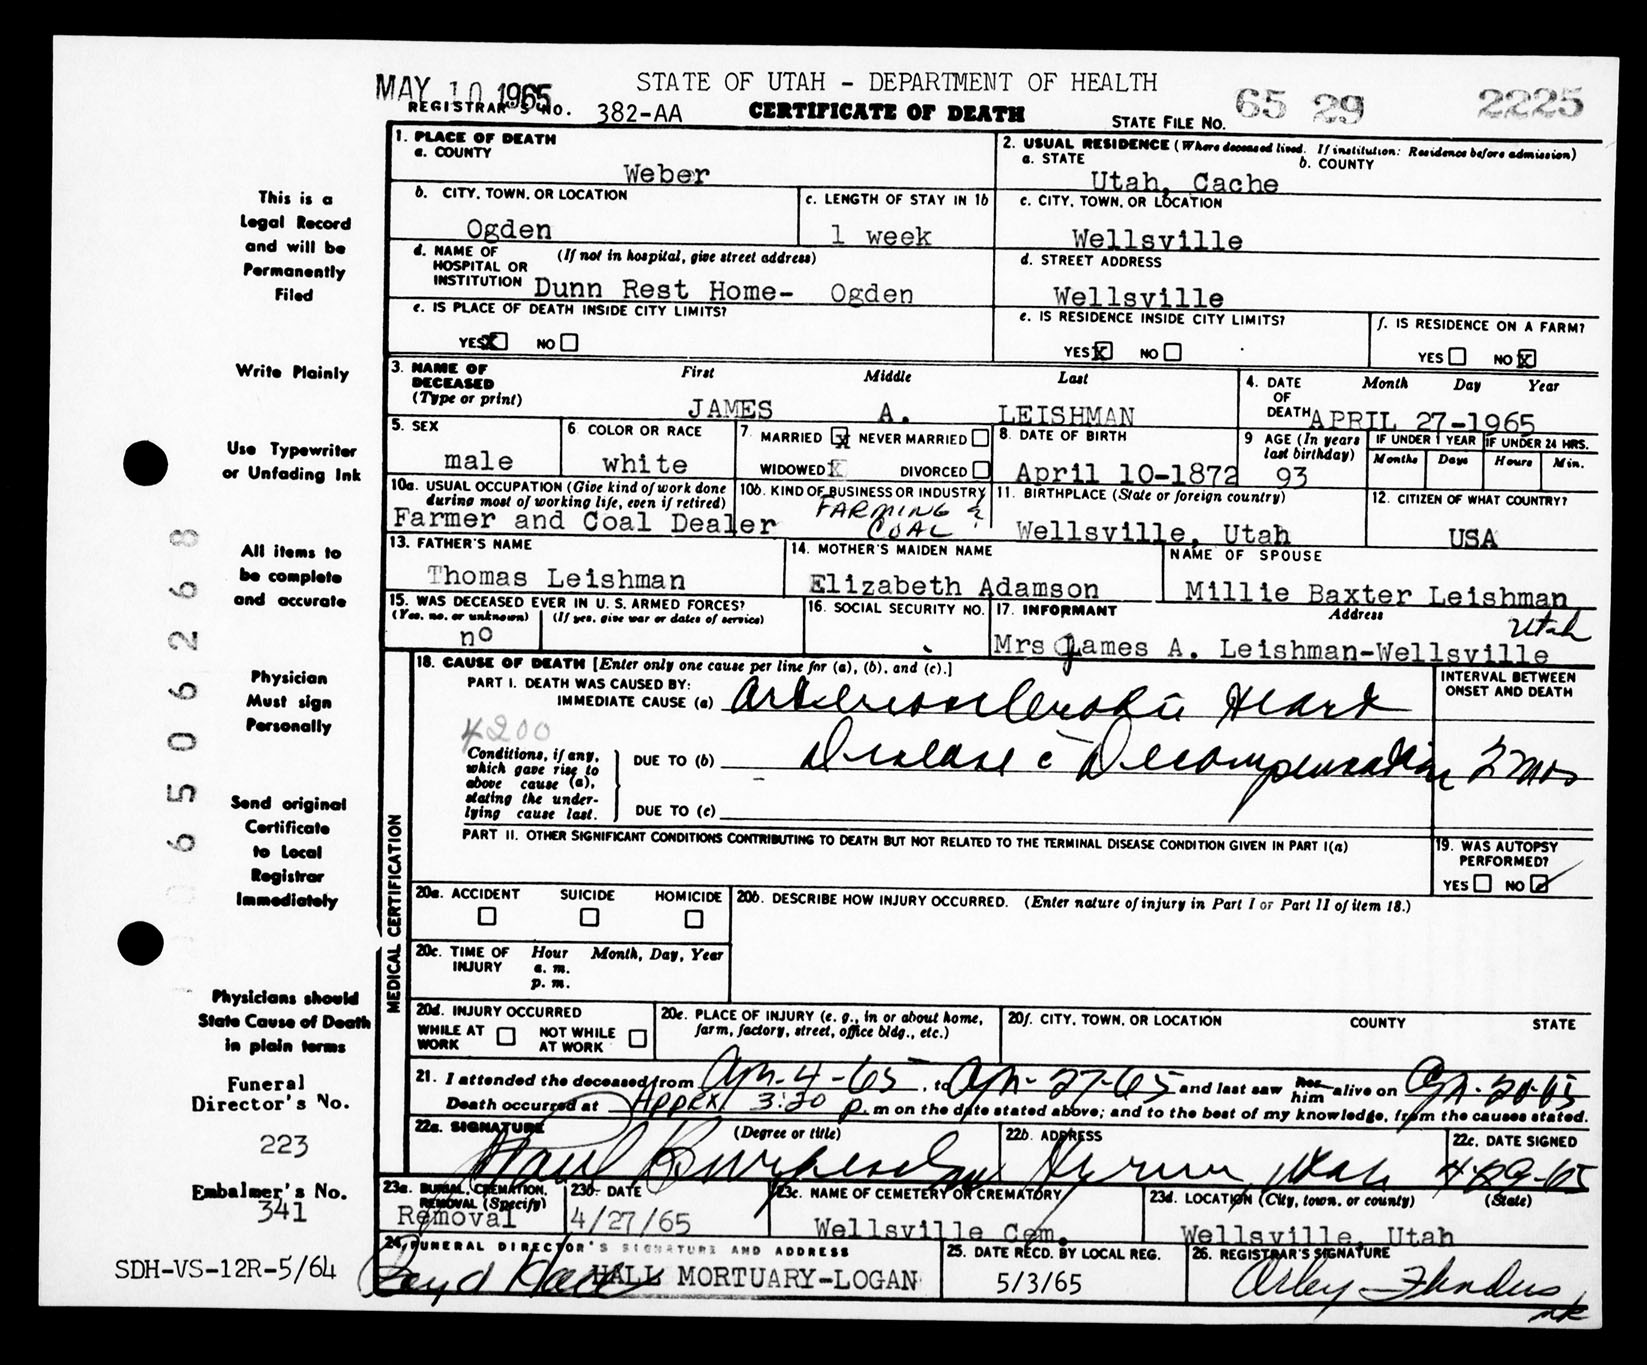 MAY 10 1965
STATE OF UTAH - DEPARTMENT OF HEALTH
REGISTRAR'S NO. 382-AA
CERTIFICATE OF DEATH
STATE FILE NO. 65 29 2225
This is a
Legal Record
and will be
Permanently
Filed
Write Plainly
Use Typewriter
or Unfading Ink
All items to
be complete
and accurate
Physician
Must sign
Personally
Send original
Certificate
to Local
Registrar
Immediately
Physicians should
State Cause of Death
in plain terms
Funeral
Director's No.
223
Embalmer's No.
341
SDH-VS-12R-5/64
6 5 0 6 2 6 8
1. PLACE OF DEATH
a. COUNTY
Weber
2. USUAL RESIDENCE (Where deceased lived. If institution: Residence before admission)
a. STATE b. COUNTY
Utah, Cache
b. CITY, TOWN, OR LOCATION
Ogden
c. LENGTH OF STAY IN 1b
1 week
c. CITY, TOWN, OR LOCATION
Wellsville
d. NAME OF (If not in hospital, give street address)
HOSPITAL OR
INSTITUTION Dunn Rest Home- Ogden
d. STREET ADDRESS
Wellsville
e. IS PLACE OF DEATH INSIDE CITY LIMITS?
YES X NO
e. IS RESIDENCE INSIDE CITY LIMITS?
YES X NO
f. IS RESIDENCE ON A FARM?
YES NO X
3. NAME OF First Middle Last
DECEASED
(Type or print)
JAMES A. LEISHMAN
4. DATE Month Day Year
OF
DEATH APRIL 27-1965
5. SEX
male
6. COLOR OR RACE
white
7. MARRIED X NEVER MARRIED
WIDOWED X DIVORCED
8. DATE OF BIRTH
April 10-1872
9 AGE (In years
last birthday)
93
IF UNDER 1 YEAR
Months Days
IF UNDER 24 HRS.
Hours Min.
10a. USUAL OCCUPATION (Give kind of work done
during most of working life, even if retired)
Farmer and Coal Dealer
10b. KIND OF BUSINESS OR INDUSTRY
FARMING &
COAL
11. BIRTHPLACE (State or foreign country)
Wellsville, Utah
12. CITIZEN OF WHAT COUNTRY?
USA
13. FATHER'S NAME
Thomas Leishman
14. MOTHER'S MAIDEN NAME
Elizabeth Adamson
NAME OF SPOUSE
Millie Baxter Leishman
15. WAS DECEASED EVER IN U. S. ARMED FORCES?
(Yes, no, or unknown) (If yes, give war or dates of service)
no
16. SOCIAL SECURITY NO.
17. INFORMANT Address
Utah
Mrs James A. Leishman-Wellsville
MEDICAL CERTIFICATION
18. CAUSE OF DEATH [Enter only one cause per line for (a), (b), and (c).]
INTERVAL BETWEEN
ONSET AND DEATH
PART I. DEATH WAS CAUSED BY:
IMMEDIATE CAUSE (a) Arteriosclerotic Heart
4200
Conditions, if any,
which gave rise to
above cause (a),
stating the under-
lying cause last.
DUE TO (b) Disease c̄ Decompensation 2 mos
DUE TO (c)
PART II. OTHER SIGNIFICANT CONDITIONS CONTRIBUTING TO DEATH BUT NOT RELATED TO THE TERMINAL DISEASE CONDITION GIVEN IN PART I(a)
19. WAS AUTOPSY
PERFORMED?
YES NO ✓
20a. ACCIDENT SUICIDE HOMICIDE
20b. DESCRIBE HOW INJURY OCCURRED. (Enter nature of injury in Part I or Part II of item 18.)
20c. TIME OF Hour Month, Day, Year
INJURY a. m.
p. m.
20d. INJURY OCCURRED
WHILE AT WORK NOT WHILE AT WORK
20e. PLACE OF INJURY (e. g., in or about home,
farm, factory, street, office bldg., etc.)
20f. CITY, TOWN, OR LOCATION COUNTY STATE
21. I attended the deceased from Apr-4-65, to Apr-27-65 and last saw her him alive on Apr-20-65
Death occurred at Apprx 3:20 p. m on the date stated above; and to the best of my knowledge, from the causes stated.
22a. SIGNATURE (Degree or title)
Paul
22b. ADDRESS
Hyrum, Utah
22c. DATE SIGNED
4-29-65
23a. BURIAL, CREMATION,
REMOVAL (Specify)
Removal
23b. DATE
4/27/65
23c. NAME OF CEMETERY OR CREMATORY
Wellsville Cem.
23d. LOCATION (City, town, or county) (State)
Wellsville, Utah
24. FUNERAL DIRECTOR'S SIGNATURE AND ADDRESS
Loyd Hall HALL MORTUARY-LOGAN
25. DATE RECD. BY LOCAL REG.
5/3/65
26. REGISTRAR'S SIGNATURE
Orley